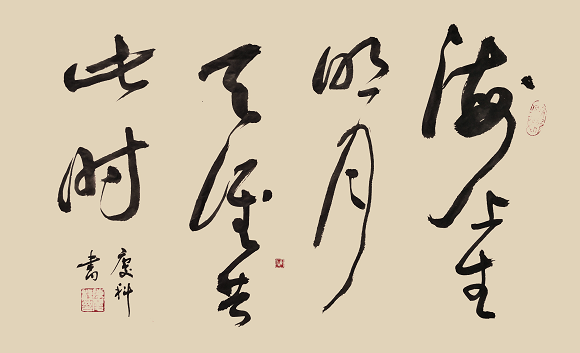 海上生
明月
天涯共
此时
慶科
書